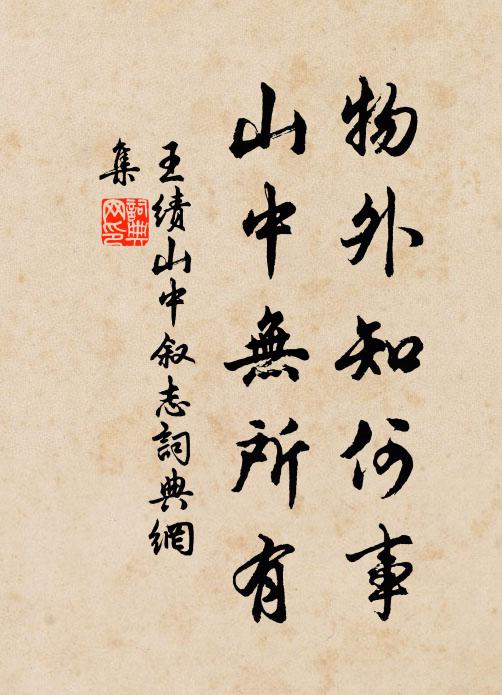 物外知何事
山中無所有
王績山中叙志詞典網
集
詞典
网印